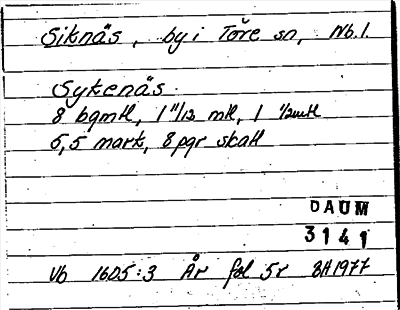 Siknäs, by i Töre sn, Nb. l.
Sykenäs.
8 bgmtl, 1 11/12 mtl, 1 1/2mtl
5,5 mark, 8 pgr skatt
DAUM
3141
Vb 1605:3 År fol 5r BH 1977